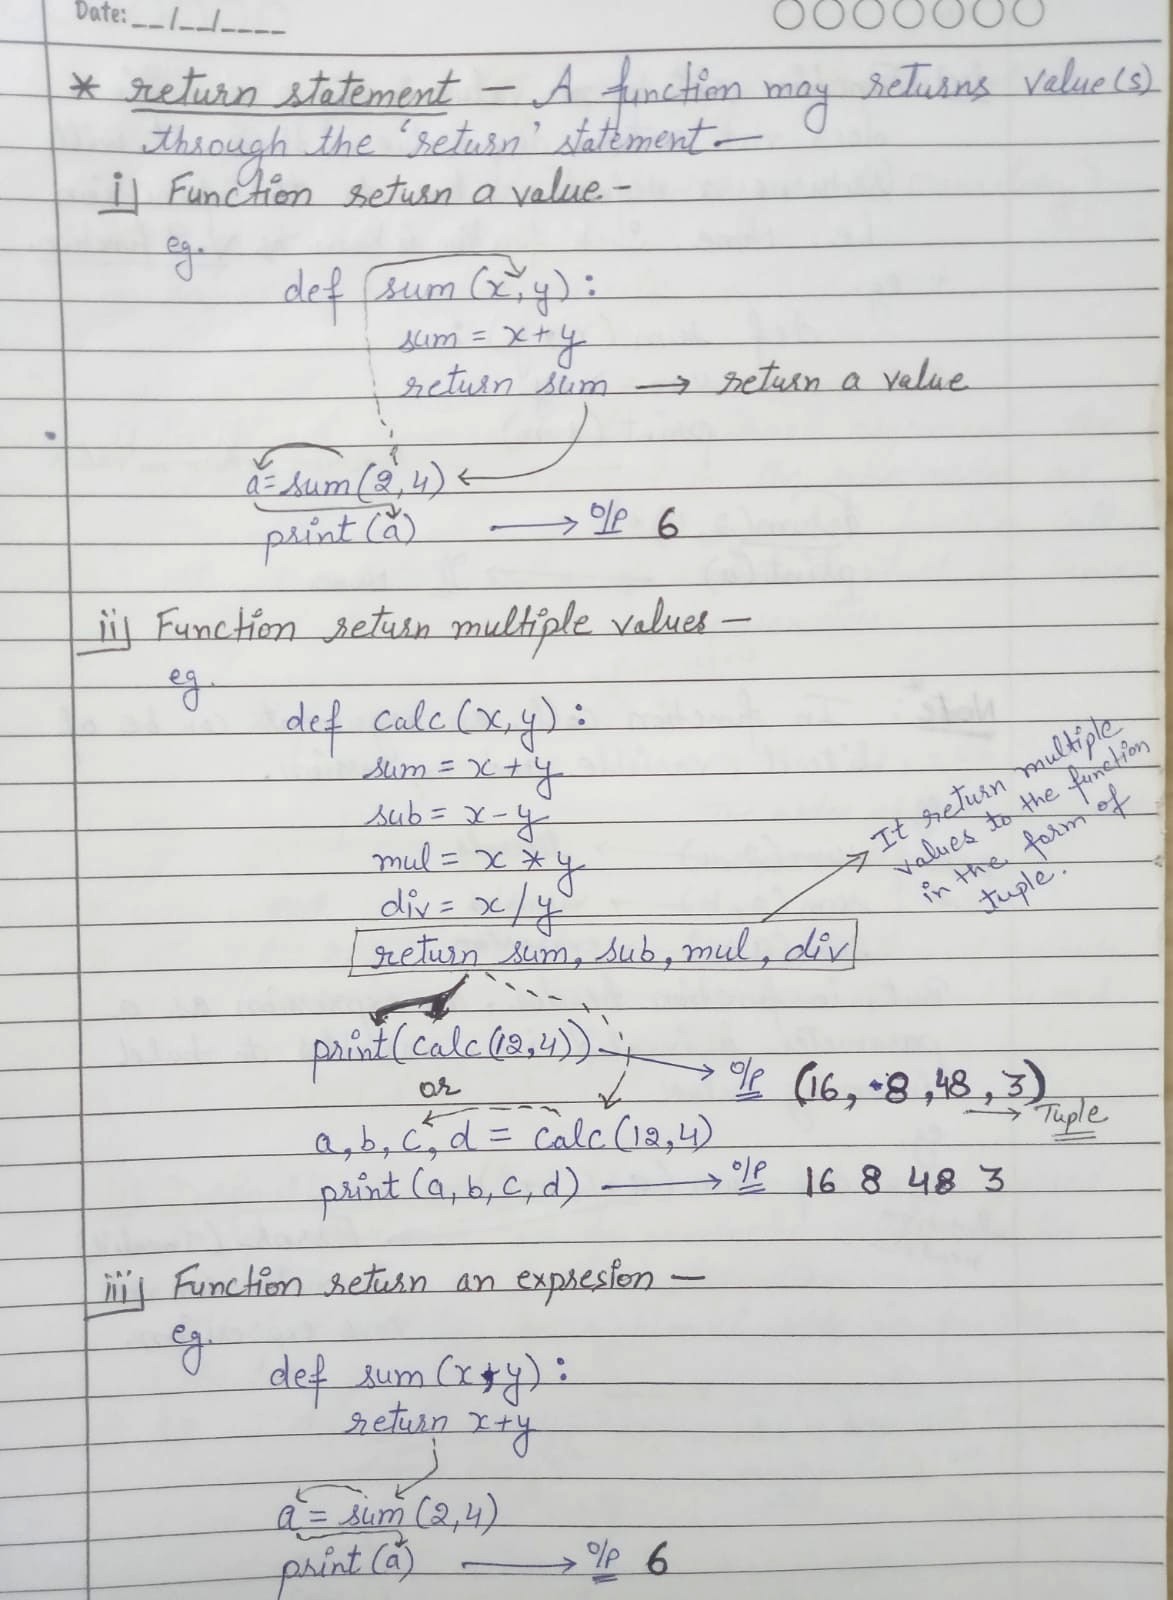 Date: __/__/____
* return statement — A function may returns value(s)
through the 'return' statement —
i) Function return a value. -
eg.
def sum (x, y) :
sum = x+y
return sum → return a value
a = sum (2, 4)
print (a) → o/p 6
ii) Function return multiple values —
eg.
def calc (x, y) :
sum = x + y
sub = x - y
mul = x * y
div = x / y
return sum, sub, mul, div
It return multiple
values to the function
in the form of
tuple.
print (calc (12, 4)) → o/p (16, 8, 48, 3) → Tuple
or
a, b, c, d = calc (12, 4)
print (a, b, c, d) → o/p 16 8 48 3
iii) Function return an expresion —
eg.
def sum (x, y) :
return x+y
a = sum (2, 4)
print (a) → o/p 6